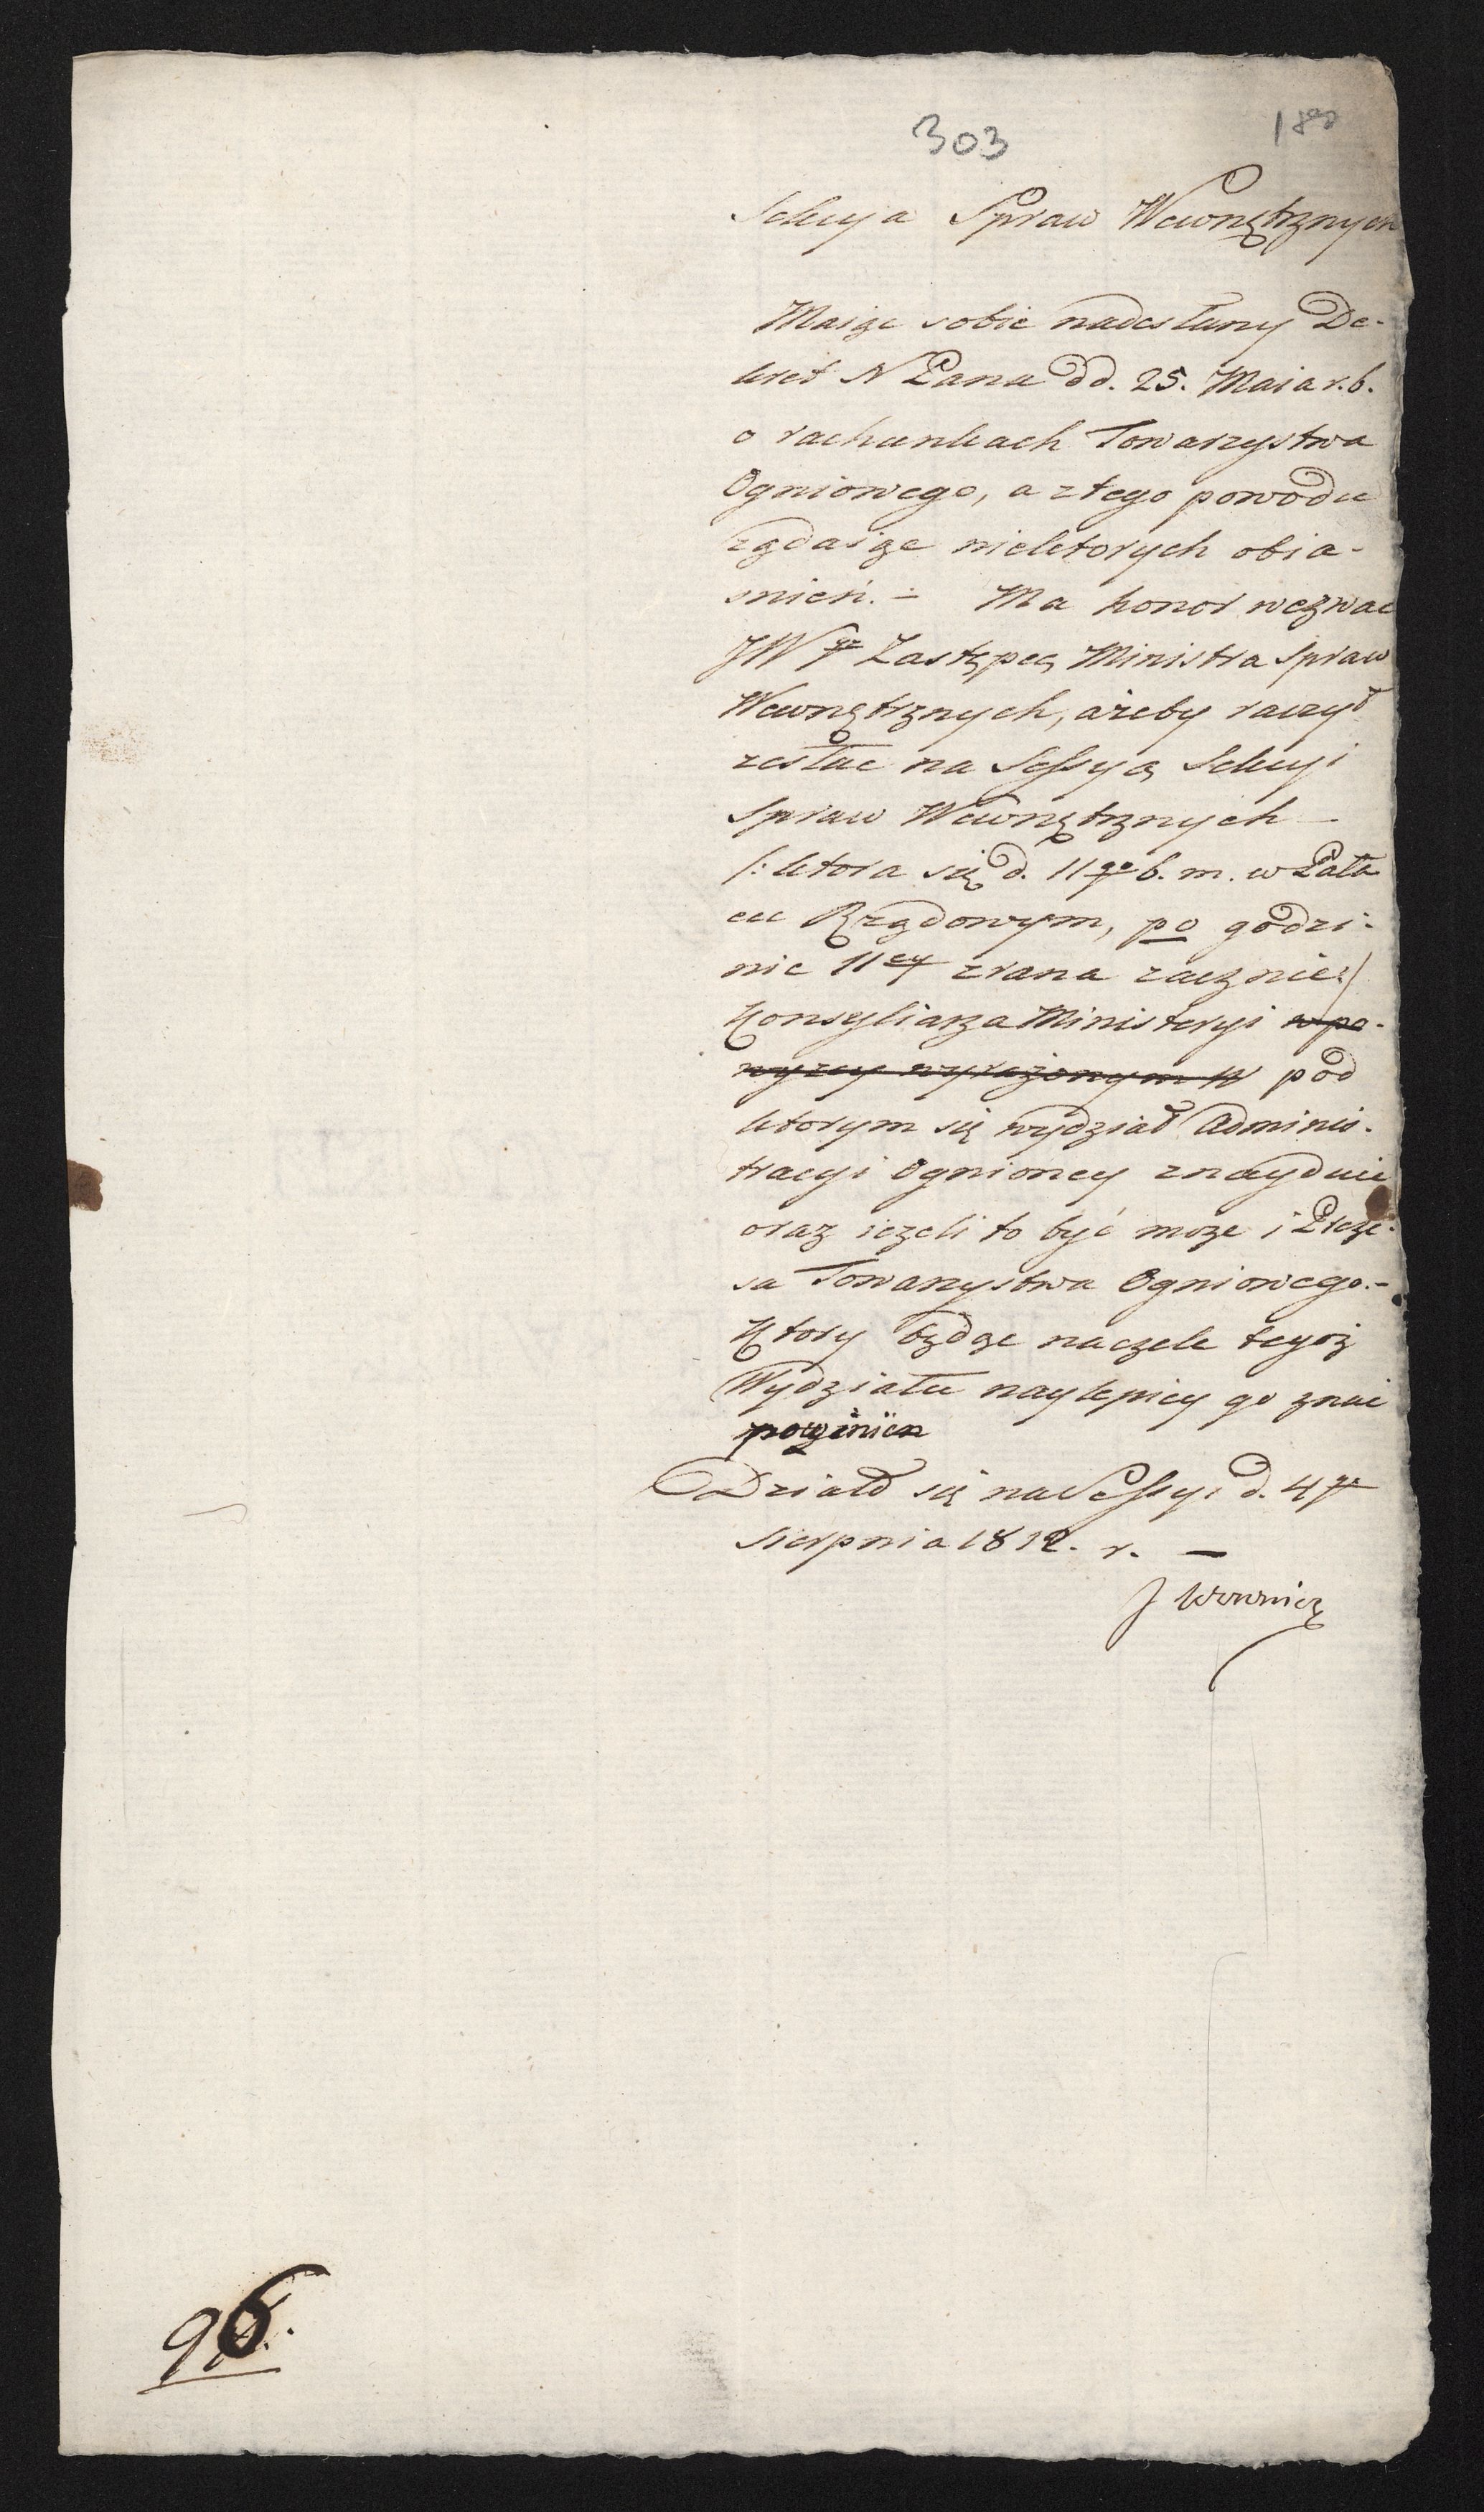 303
Sekcya Spraw Wewnętrznych
Maiąc sobie nadesłany De-
kret N Pana dd. 25. Maia r. b.
o rachunkach Towarzystwa
Ogniowego, a z tego powodu
rządaiąc niektorych obia-
snień. - Ma honor wezwac
JWgo Zastępcę Ministra Spraw
Wewnętrznych, ażeby raczył
zesłac na Sessyą Sekcyi
Spraw Wewnętrznych -
/: ktora się d. 11go b. m. w Pała
cu Rządowym, po godzi-
nie 11ey zrana zacznie :/
Konsyliarza Ministeryi w po-
wyzey wyrażonym W pod
ktorym się wydział Adminis-
tracyi Ogniowey znayduie
oraz ieżeli to być może i Preze-
sa Towarzystwa Ogniowego.-
Ktory będąc na czele tegoż
Wydziału naylepiey go znać
powinien
Działo się na Sessyi d. 4go
Sierpnia 1812. r. -
J Woronicz
96.